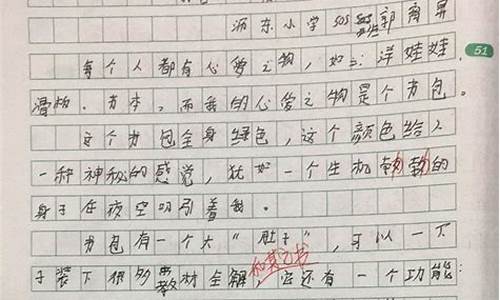 沥东小学505班郭育昇
每个人都有心爱之物，如：洋娃娃、
51
滑板、书本，而我的心爱之物是个书包。
这个书包全身绿色，这个颜色给人
一种神秘的感觉，犹如一个生机勃勃的
身子在夜空吸引着我。
书包有一个大“肚子”，可以一下
和其它书
子装下很多教材全解 它还有一个功能